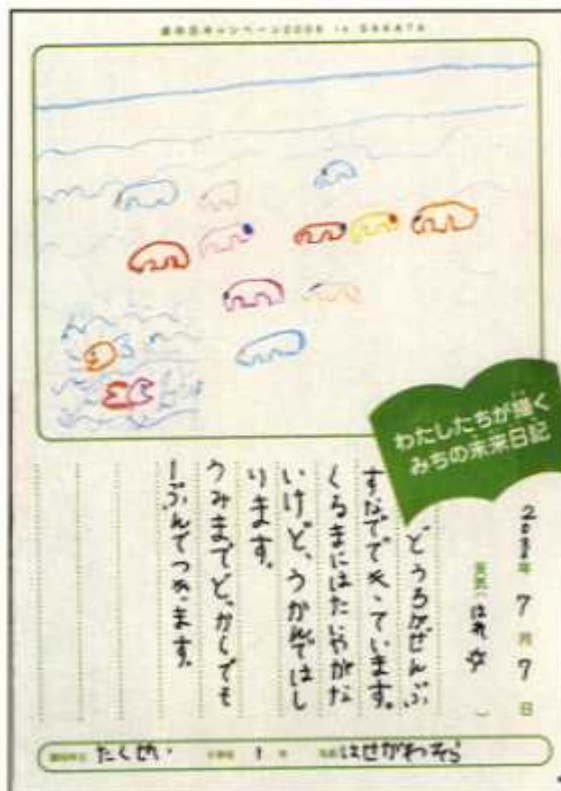 道の日キャンペーン2008 in SAKATA
わたしたちが描く
みちの未来日記
年 7月 7日
天気（はれ ）
どうろがぜんぶ
すなでできています。
くるまにはたいやがな
いけど、うかんではし
ります。
うみまでど、かしでも
１ぷんでつきます。
たくせい 小学校 1年 名前 はせがわそら